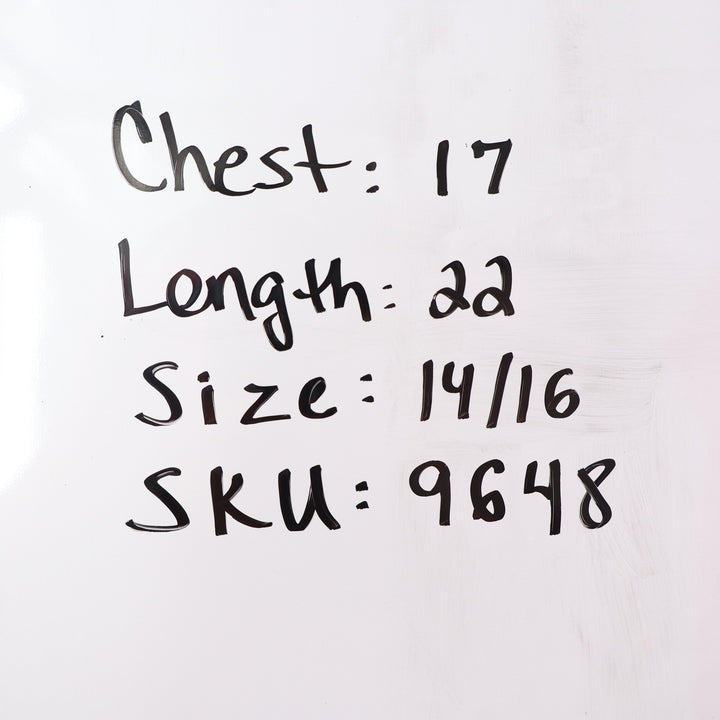 Chest: 17
Length: 22
Size: 14/16
SKU: 9648